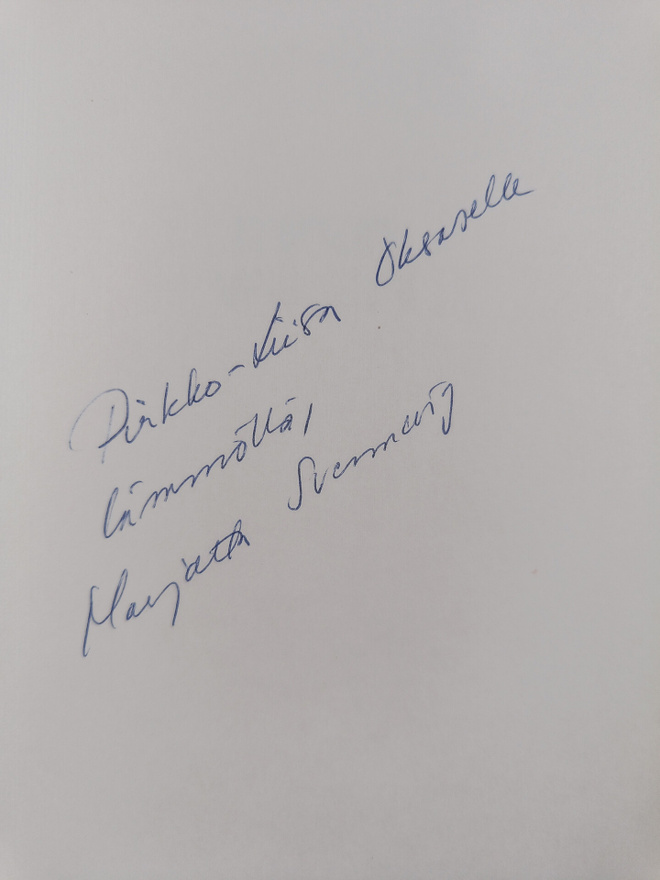 Pirkko-Liisa Oksaselle
lämmöllä,
Marjatta Svennevig